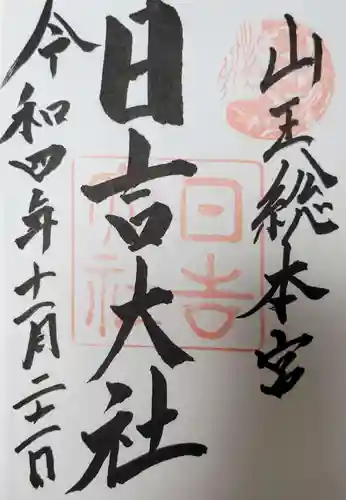 山王総本宮
日吉大社
令和四年十一月二十一日
日吉大社